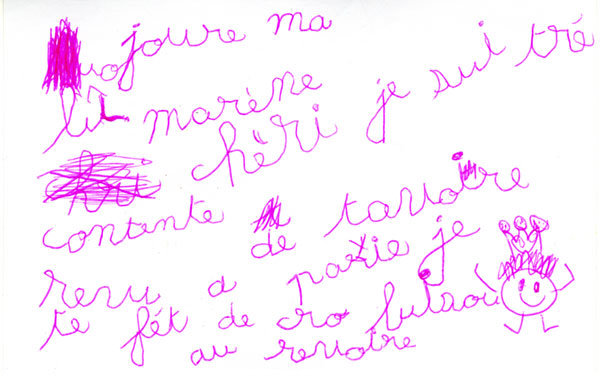 joure ma
marène
chèri je sui tré
contente de tavoire
revu a parie je
te fét de cro buisou
au revoire